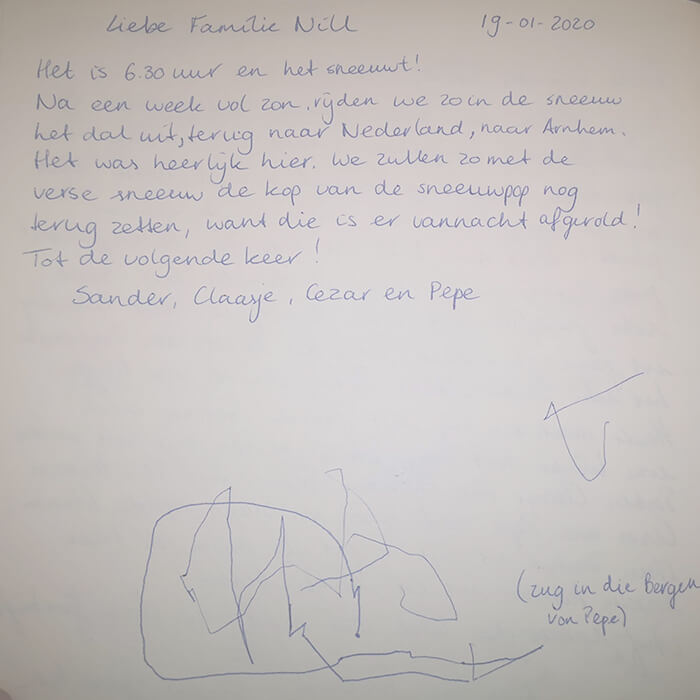 Liebe Familie Nill 19-01-2020
Het is 6.30 uur en het sneeuwt!
Na een week vol zon, rijden we zo in de sneeuw
het dal uit, terug naar Nederland, naar Arnhem.
Het was heerlijk hier. We zullen zo met de
verse sneeuw de kop van de sneeuwpop nog
terug zetten, want die is er vannacht afgerold!
Tot de volgende keer!
Sander, Claasje, Cezar en Pepe
(zug in die Bergen
von Pepe)